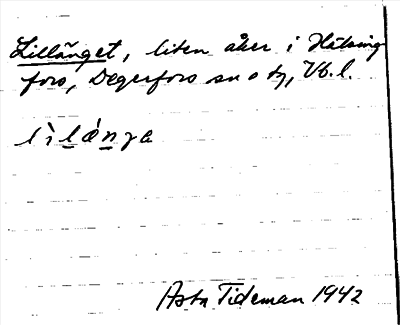 Lillänget, liten åker i Hälsing-
fors, Degerfors sn o tg, Vb. l.
Asta Tideman 1942